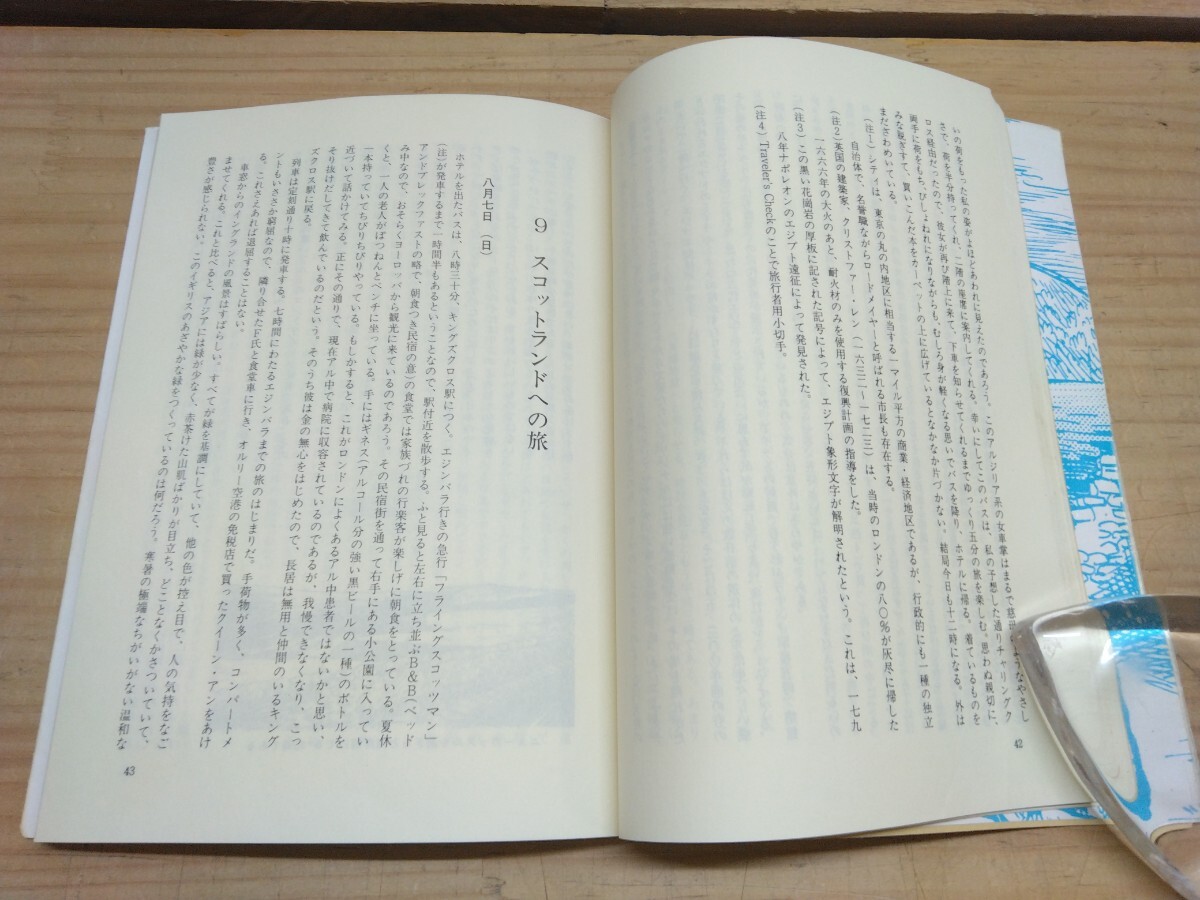 いの荷をもった私の姿がよほどあわれに見えたのであろう。このアルジリア系の女車掌はまるで慈母のようなやさし
さで、荷を半分持ってくれ、二階の座席に案内してくれる。幸いにしてこのバスは、私の予想した通りチャリングク
ロス経由だったので、彼女が再び階上に来て、下車を知らせてくれるまでゆっくり五分の旅を楽しむ。思わぬ親切に、
両手に荷をもちびしょぬれになりながらも、むしろ身が軽くなる思いでバスを降り、ホテルに帰る。着ているものを
みな脱ぎすて、買いこんだ本をカーペットの上に広げているとなかなか片づかない。結局今日も十二時になる。外は
まだざわめいている。
(注1) シティは、東京の丸の内地区に相当する一マイル平方の商業・経済地区であるが、行政的にも一種の独立
自治体で、名誉職ながらロードメイヤーと呼ばれる市長も存在する。
(注2) 英国の建築家、クリストファー・レン(一六三二〜一七二三)は、当時のロンドンの八〇%が灰尽に帰した
一六六六年の大火のあと、耐火材のみを使用する復興計画の指導をした。
(注3) この黒い花崗岩の厚板に記された記号によって、エジプト象形文字が解明されたという。これは、一七九
八年ナポレオンのエジプト遠征によって発見された。
(注4) Traveler's Checkのことで旅行者用小切手。
42
9 スコットランドへの旅
八月七日(日)
ホテルを出たバスは、八時三十分、キングズクロス駅につく。エジンバラ行きの急行「フライングスコッツマン」
(注)が発車するまで一時間半もあるということなので、駅付近を散歩する。ふと見ると左右に立ち並ぶB&B(ベッド
アンドブレックファストの略で、朝食つき民宿の意)の食堂では家族づれの行楽客が楽しげに朝食をとっている。夏休
み中なので、おそらくヨーロッパから観光に来ているのであろう。その民宿街を通って右手にある小公園に入ってい
くと、一人の老人がぽつねんとベンチに坐っている。手にはギネス(アルコール分の強い黒ビールの一種)のボトルを
一本持っていてちびりちびりやっている。もしかすると、これがロンドンによくあるアル中患者ではないかと思い、
近づいて話かけてみる。正にその通りで、現在アル中で病院に収容されているのであるが、我慢できなくなり、こっ
そり抜けだしてきて飲んでいるのだという。そのうち彼は金の無心をはじめたので、長居は無用と仲間のいるキング
ズクロス駅に戻る。
列車は定刻通り十時に発車する。七時間にわたるエジンバラまでの旅のはじまりだ。手荷物が多く、コンパートメ
ントもいささか窮屈なので、隣り合せたF氏と食堂車に行き、オルリー空港の免税店で買ったクイーン・アンをあけ
る。これさえあれば退屈することはない。
車窓からのイングランドの風景はすばらしい。すべてが緑を基調にしていて、他の色が控え目で、人の気持をなご
ませてくれる。これと比べると、アジアには緑が少なく、赤茶けた山肌ばかりが目立ち、どことなくかさついていて、
豊さが感じられない。このイギリスのあざやかな緑をつくっているのは何だろう。寒暑の極端なちがいがない温和な
43